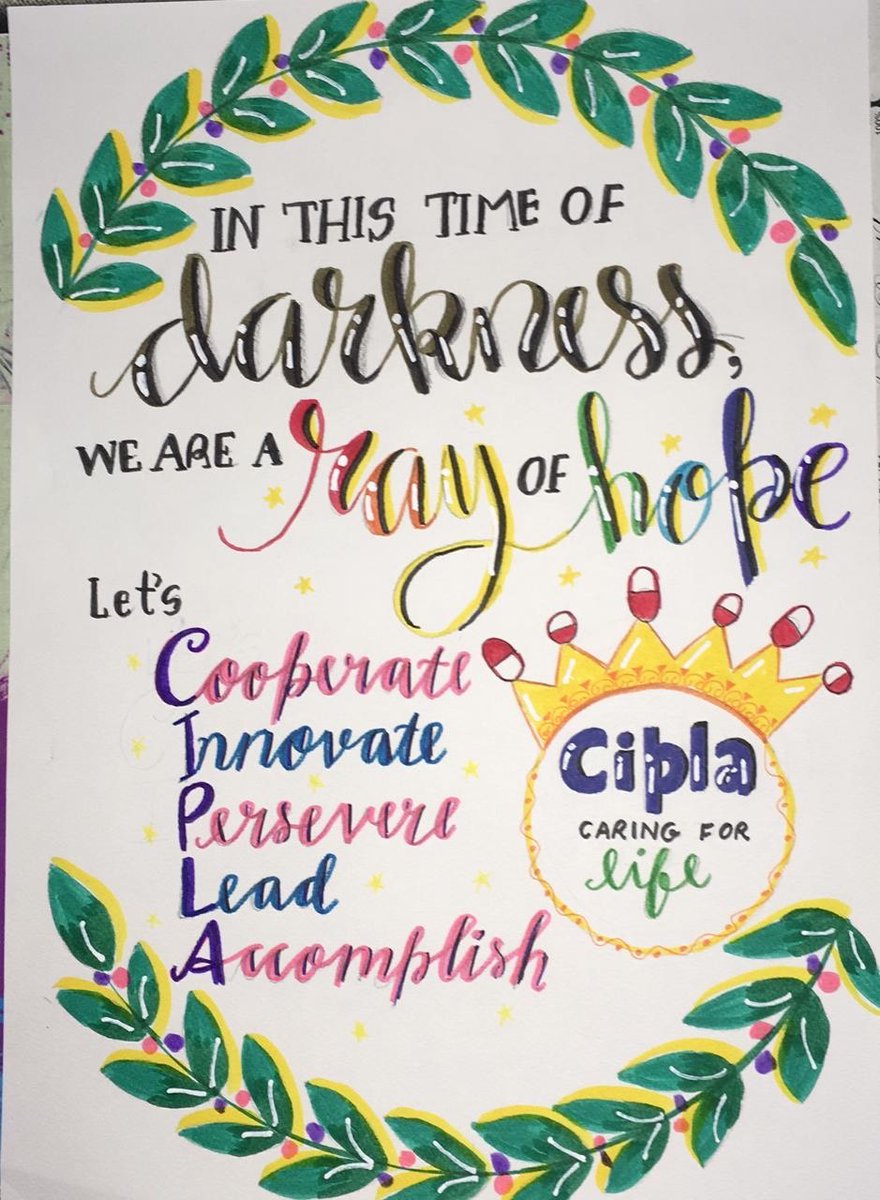 IN THIS TIME OF
darkness,
WE ARE A ray OF hope
Let's
Cooperate
Innovate
Persevere
Lead
Accomplish
Cipla
CARING FOR
life